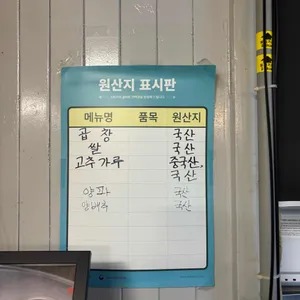 원산지 표시판
메뉴명 품목 원산지
곱창 국산
쌀 국산
고추가루 중국산,
국산
양파 국산
양배추 국산